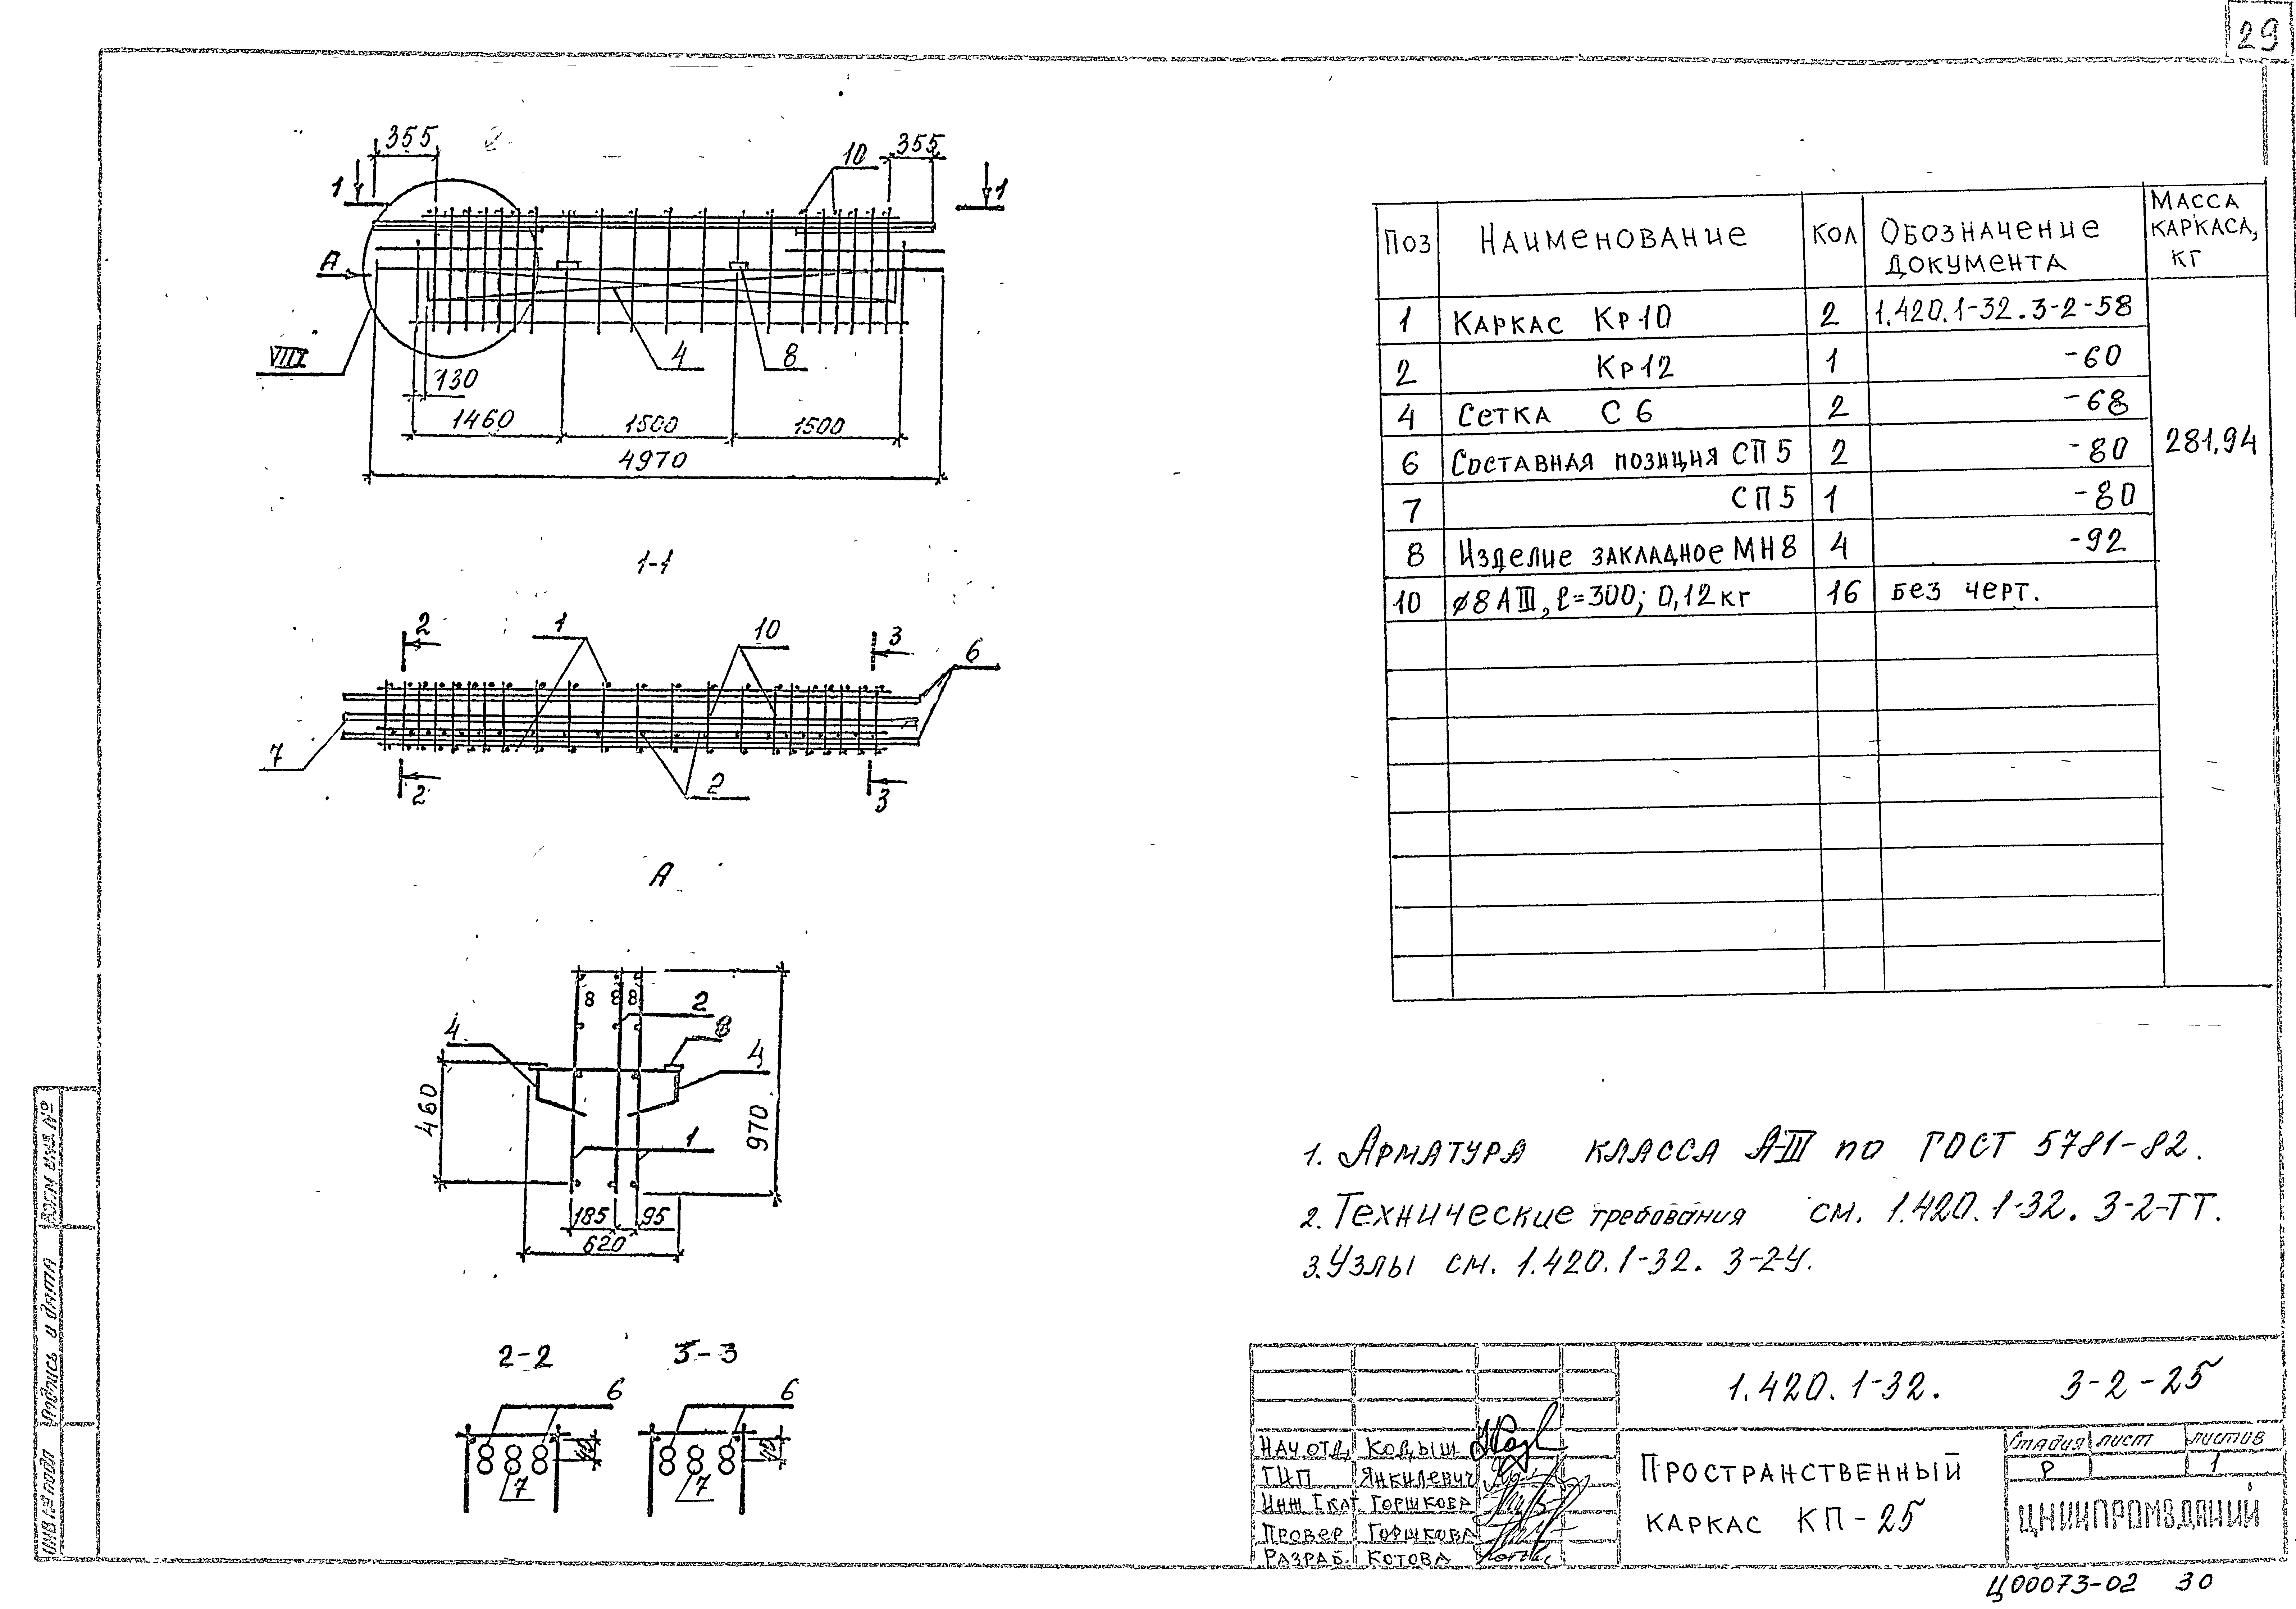 29
355
10
355
1
1
А
VIII
4
8
130
1460
1500
1500
4970
1-1
2
1
10
3
6
7
2
2
3
А
8 8 8
2
4
8
4
460
970
1
185
95
620
2-2
3-3
6
6
7
7
Поз
Наименование
Кол
Обозначение документа
Масса каркаса, кг
1 Каркас Кр10 2 1.420.1-32.3-2-58
2 Кр12 1 -60
4 Сетка С6 2 -68
6 Составная позиция СП5 2 -80
281,94
7 СП5 1 -80
8 Изделие закладное МН8 4 -92
10 ø8АIII, ℓ=300; 0,12кг 16 без черт.
1. Арматура класса А-III по ГОСТ 5781-82.
2. Технические требования см. 1.420.1-32. 3-2-ТТ.
3. Узлы см. 1.420.1-32. 3-2-У.
1.420.1-32. 3-2-25
Нач отд. Кодыш
ГИП Янкилевич
Инж I кат. Горшкова
Провер Горшкова
Разраб. Котова
Пространственный
каркас КП-25
Стадия лист листов
Р 1
ЦНИИПРОМЗДАНИЙ
Ц00073-02 30
Взам инв №
Подпись и дата
Инв № подл